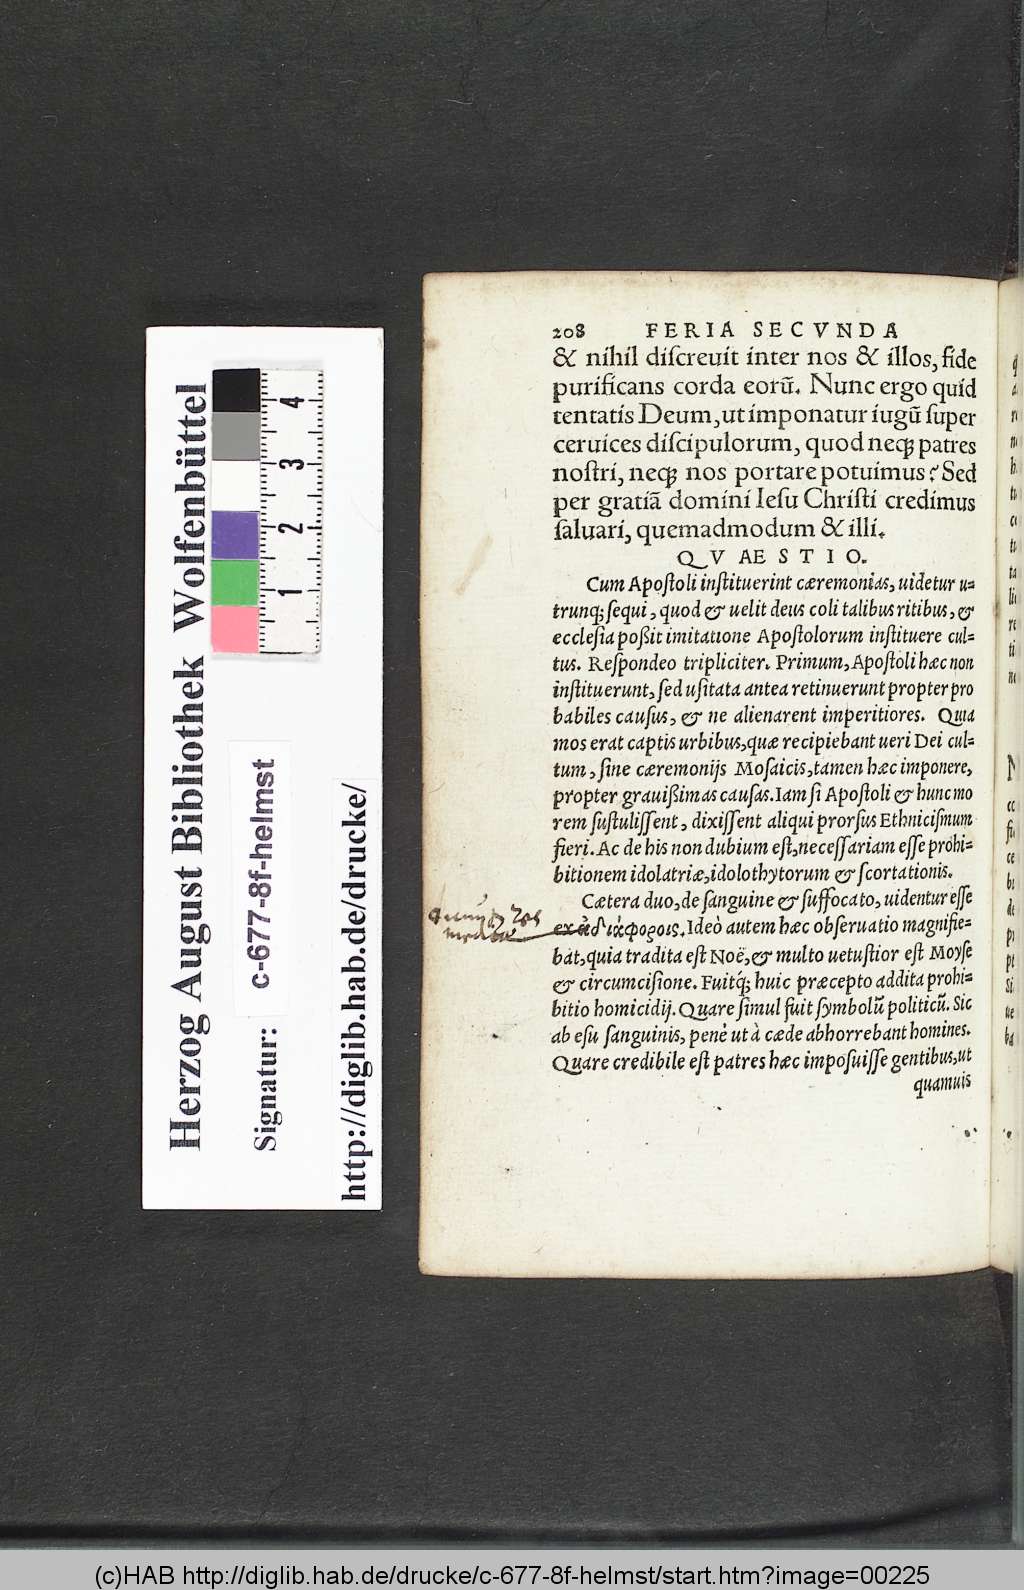 208 FERIA SECVNDA
& nihil discreuit inter nos & illos, fide
purificans corda eorũ. Nunc ergo quid
tentatis Deum, ut imponatur iugũ super
ceruices discipulorum, quod neqꝫ patres
nostri, neqꝫ nos portare potuimus? Sed
per gratiã domini Iesu Christi credimus
saluari, quemadmodum & illi.
QVAESTIO.
Cum Apostoli instituerint cæremonias, uidetur u=
trunqꝫ sequi, quod & uelit deus coli talibus ritibus, &
ecclesia poßit imitatione Apostolorum instituere cul=
tus. Respondeo tripliciter. Primum, Apostoli hæc non
instituerunt, sed usitata antea retinuerunt propter pro
babiles causas, & ne alienarent imperitiores. Quia
mos erat captis urbibus, quæ recipiebant ueri Dei cul=
tum, sine cæremonijs Mosaicis, tamen hæc imponere,
propter grauißimas causas. Iam si Apostoli & hunc mo
rem sustulissent, dixissent aliqui prorsus Ethnicismum
fieri. Ac de his non dubium est, necessariam esse prohi=
bitionem idolatriæ, idolothytorum & scortationis.
Cætera duo, de sanguine & suffocato, uidentur esse
ex ἀδιαφόροις. Ideò autem hæc obseruatio magnifie=
bat, quia tradita est Noë, & multo uetustior est Moyse
& circumcisione. Fuitq́ꝫ huic præcepto addita prohi=
bitio homicidij. Quare simul fuit symbolũ politicũ. Sic
ab esu sanguinis, penè ut à cæde abhorrebant homines.
Quare credibile est patres hæc imposuisse gentibus, ut
quamuis
Herzog August Bibliothek Wolfenbüttel
Signatur: c-677-8f-helmst
http://diglib.hab.de/drucke/
1 2 3 4
(c)HAB http://diglib.hab.de/drucke/c-677-8f-helmst/start.htm?image=00225